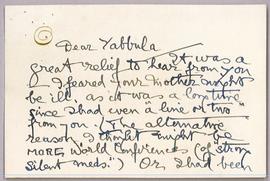 Dear Yabbula
It was a
great relief to hear from you
I feared your Mother might
be ill as it was a longtime
since I had even "a line or two"
from you. (The alternative
reason I thought might be
MORE World Conferences (of strong
silent meds.") Or I had been